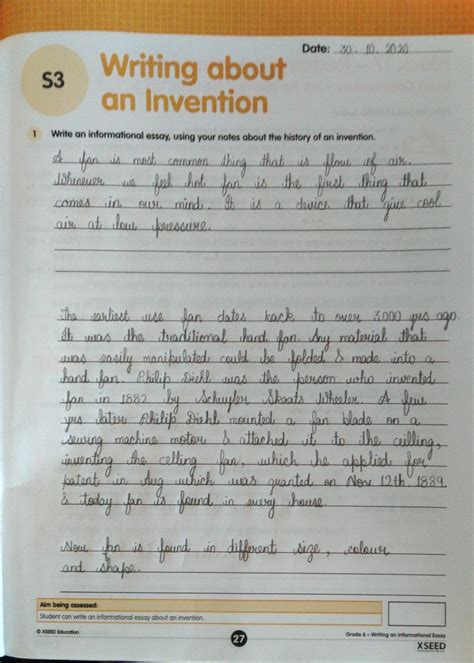 Date: 30.10.2020
S3
Writing about
an Invention
1 Write an informational essay, using your notes about the history of an invention.
A fan is most common thing that is flow of air.
Whenever we feel hot fan is the first thing that
comes in our mind. It is a device that give cool
air at low pressure.
The earliest use fan dates back to over 3000 yrs ago.
It was the traditional hand fan. Any material that
was easily manipulated could be folded & made into a
hand fan. Philip Diehl was the person who invented
fan in 1882 by Schuyler Skaats Wheeler. A few
yrs later Philip Diehl mounted a fan blade on a
sewing machine motor & attached it to the ceilling,
inventing the celling fan, which he applied for
patent in Aug which was granted on Nov 12th 1889
& today fan is found in every house.
Now fan is found in different size, colour
and shape.
Aim being assessed:
Student can write an informational essay about an invention.
© XSEED Education
27
Grade 6 – Writing an Informational Essay
XSEED